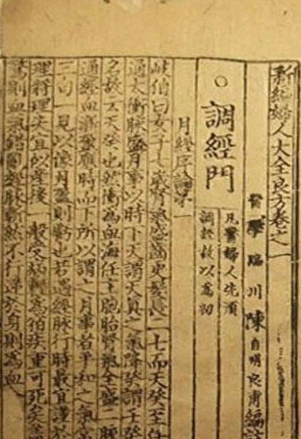 新編婦人大全良方卷之一
醫學臨川陳自明良甫編
凡醫婦人先須
調經故以為初
○調經門
月經序論第一
岐伯曰女子七歲腎氣盛齒更髮長二七而天癸至任
通太衝脉盛月事以時下天謂天真之氣降癸謂壬癸
之名故云天癸也然衝為血海任主胞胎腎氣全盛二脉
通經血漸盈應時而下所以謂之月事者平和之氣常
三旬一見以像月盈則虧也若遇經脉行時最宜謹於
理將理失宜似產後一般受病輕為宿疾重可死矣
驚則血氣錯亂經脉漸然不行逆於身則為血